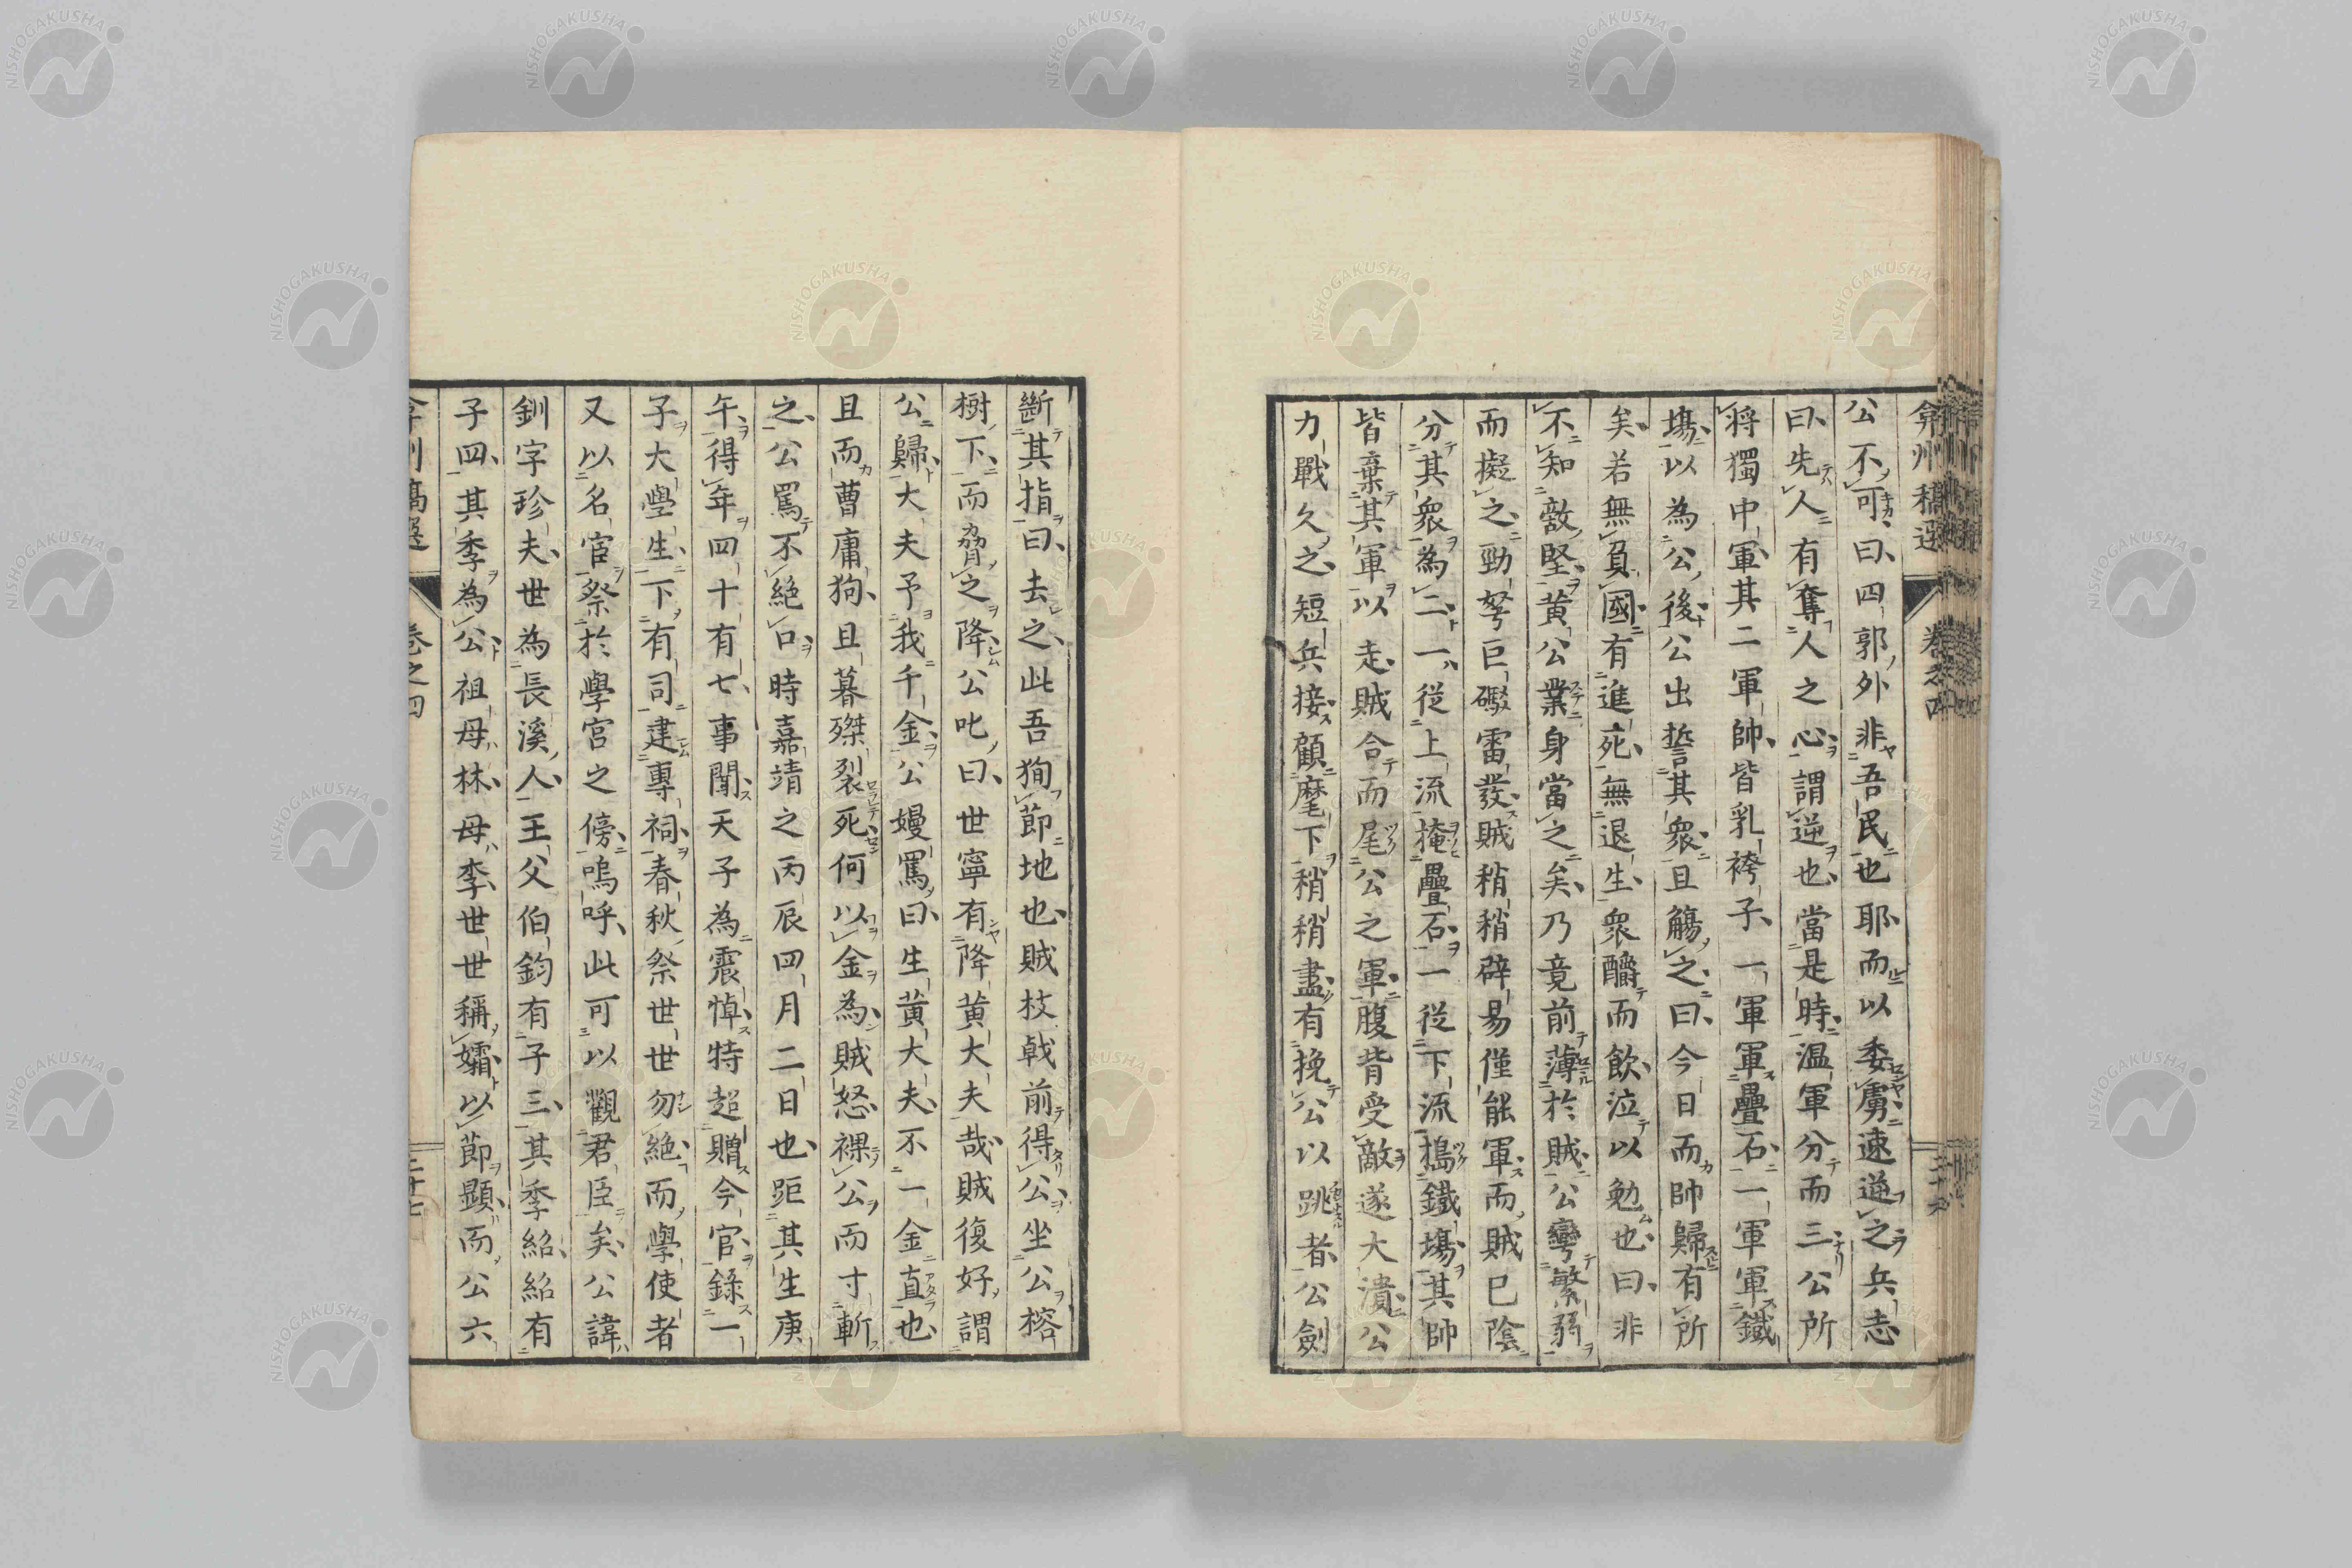 弇州稿選 卷之四
公不可曰四郭外非吾民也耶而以委虜速遄之兵志
曰先人有奪人之心謂逆也當是時溫軍分而三公所
將獨中軍其二軍帥皆乳袴子一軍軍疊石一軍軍鐵
塲以為公後公出誓其衆且觴之曰今日而帥歸有所
矣若無負國有進死無退生衆釂而飲泣以勉也曰非
不知敵堅黃公業身當之矣乃竟前薄於賊公彎繁弱
而擬之勁弩巨礮雷發賊稍稍辟易僅能軍而賊已陰
分其衆為二一從上流掩疊石一從下流搗鐵塲其帥
皆棄其軍以走賊合而尾公之軍腹背受敵遂大潰公
力戰久之短兵接顧麾下稍稍盡有挽公以跳者公劍
斷其指曰去之此吾狥節地也賊枝戟前得公坐公榕
樹下而脅之降公叱曰世寧有降黃大夫哉賊復好謂
公歸大夫予我千金公嫚罵曰生黃大夫不一金直也
且而曹庸狗且暮磔裂死何以金為賊怒裸公而寸斬
之公罵不絕口時嘉靖之丙辰四月二日也距其生庚
午得年四十有七事聞天子為震悼特超贈今官錄一
子大學生下有司建專祠春秋祭世世勿絕而學使者
又以名宦祭於學宮之傍嗚呼此可以觀君臣矣公諱
釧字珍夫世為長溪人王父伯鈞有子三其季紹紹有
子四其季為公祖母林母李世世稱孀以節顯而公六
卷之四
二十七